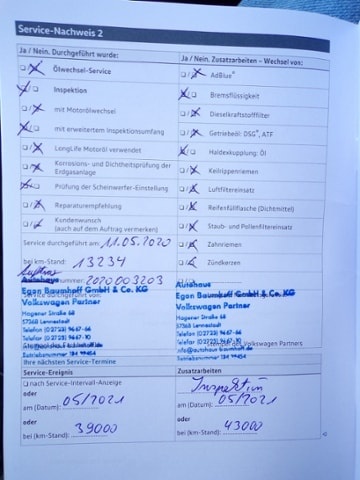 Service-Nachweis 2
Ja / Nein. Durchgeführt wurde:
Ölwechsel-Service
Inspektion
mit Motorölwechsel
mit erweitertem Inspektionsumfang
LongLife Motoröl verwendet
Korrosions- und Dichtheitsprüfung der
Erdgasanlage
Prüfung der Scheinwerfer-Einstellung
Reparaturempfehlung
Kundenwunsch
(auch auf dem Auftrag vermerken)
Service durchgeführt am: 11.05.2020
bei km-Stand: 13234
nummer: 2020003203
Autohaus
Egon Baumhoff GmbH & Co. KG
Volkswagen Partner
Hagener Straße 68
57368 Lennestadt
Telefon (02723) 9667-66
Telefax (02723) 9667-10
Betriebsnummer 184 99454
Ihre nächsten Service-Termine
Service-Ereignis
nach Service-Intervall-Anzeige
oder
am (Datum): 05/2021
oder
bei (km-Stand): 39000
Ja / Nein. Zusatzarbeiten – Wechsel von:
AdBlue®
Bremsflüssigkeit
Dieselkraftstofffilter
Getriebeöl: DSG®, ATF
Haldexkupplung: Öl
Keilrippenriemen
Luftfiltereinsatz
Reifenfüllflasche (Dichtmittel)
Staub- und Pollenfiltereinsatz
Zahnriemen
Zündkerzen
Autohaus
Egon Baumhoff GmbH & Co. KG
Volkswagen Partner
Hagener Straße 68
57368 Lennestadt
Telefon (02723) 9667-66
Telefax (02723) 9667-10
info@autohaus-baumhoff.de
Betriebsnummer 184 99454
Zusatzarbeiten
Inspektion
am (Datum): 05/2021
oder
bei (km-Stand): 43000